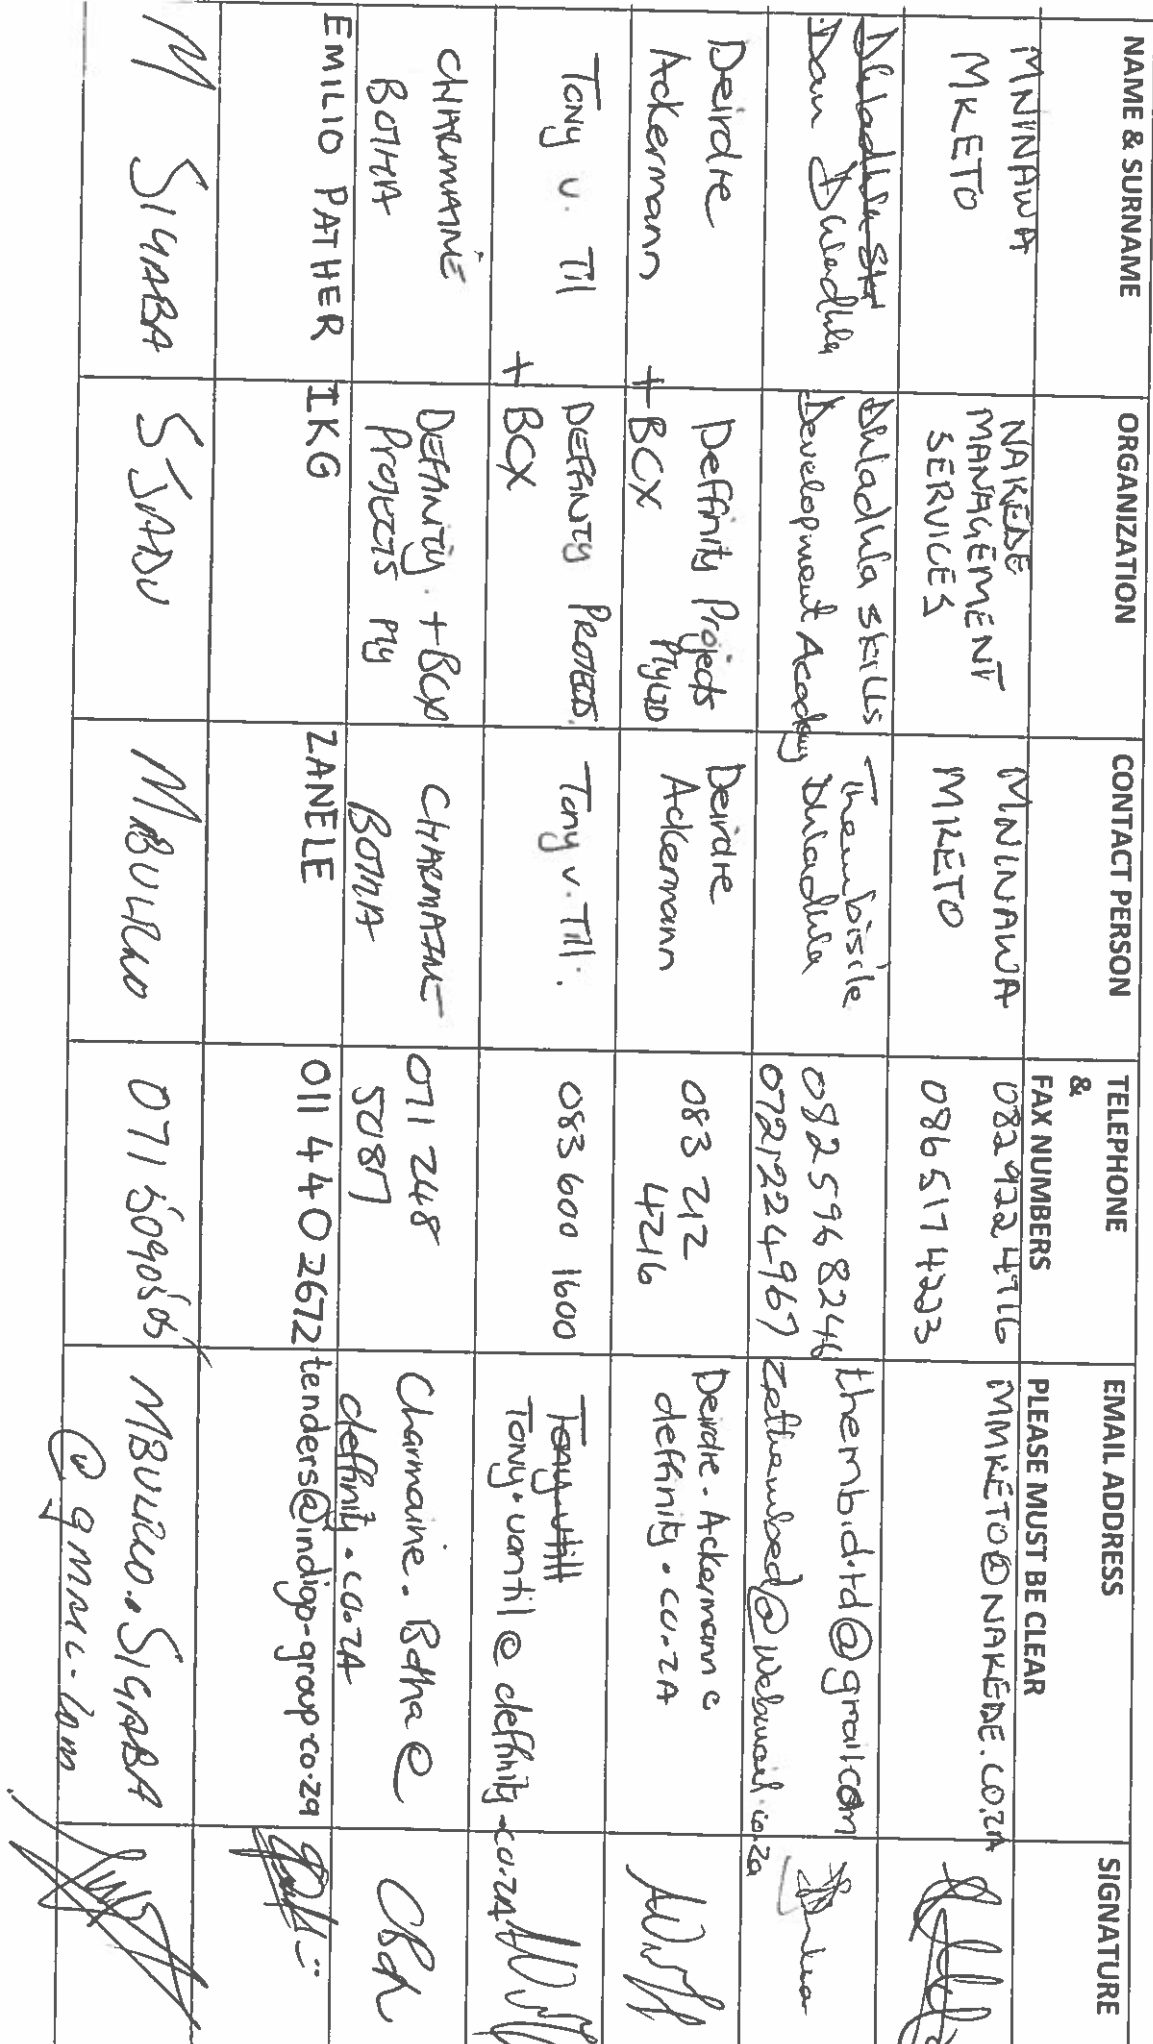 NAME & SURNAME
ORGANIZATION
CONTACT PERSON
TELEPHONE
&
FAX NUMBERS
EMAIL ADDRESS
PLEASE MUST BE CLEAR
SIGNATURE
MNINAWA
MKETO
NAKEDE
MANAGEMENT
SERVICES
MNINAWA
MKETO
082 922 4716
086 517 4223
MMKETO@NAKEDE.CO.ZA
Dan Dhladhla
Dhladhla Skills
Development Academy
Thembisile
Dhladhla
082 596 8246
0721224967
thembidtd@gmail.com
Deirdre
Ackermann
Deffinity Projects
Pty LTD
+ BCX
Deirdre
Ackermann
083 212
4216
Deirdre.Ackermann@
deffinity.co.ZA
Tony v. Til
DEFFINITY PROJECTS
+ BCX
Tony v. Til.
083 600 1600
Tony.vantil@deffinity.co.ZA
CHARMAINE
BOTHA
DEFFINITY + BCX
PROJECTS Pty
CHARMAINE
BOTHA
071 248
5087
Charmaine.Botha@
deffinity.co.ZA
EMILIO PATHER
IKG
ZANELE
011 440 2672
tenders@indigo-group.co.za
M SIGABA
SJADV
MBULELO
071 5090505
MBULELO.SIGABA
@gmail.com